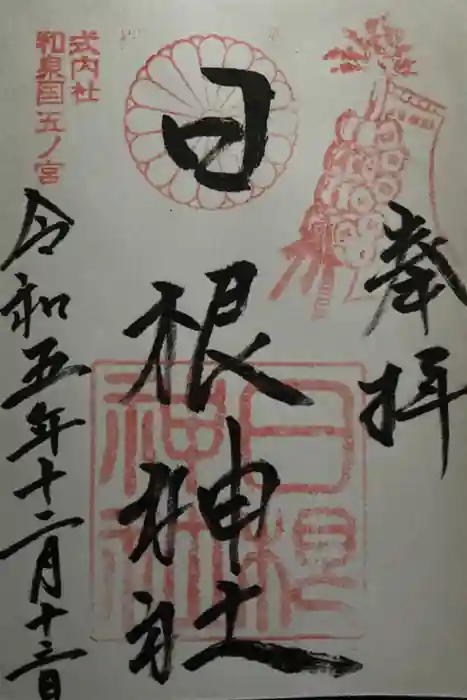 奉拝
日根神社
式内社
和泉国五ノ宮
日根神社
令和五年十二月十三日